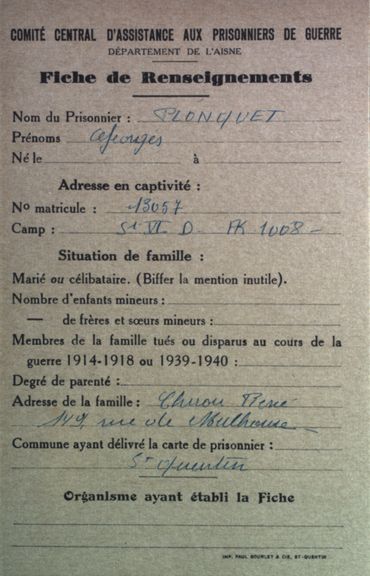 COMITÉ CENTRAL D'ASSISTANCE AUX PRISONNIERS DE GUERRE
DÉPARTEMENT DE L'AISNE
Fiche de Renseignements
Nom du Prisonnier : PLONQUET
Prénoms Georges
Né le à
Adresse en captivité :
No matricule : 13057
Camp : St VI D AK 1008 -
Situation de famille :
Marié ou célibataire. (Biffer la mention inutile).
Nombre d'enfants mineurs :
— de frères et sœurs mineurs :
Membres de la famille tués ou disparus au cours de la
guerre 1914-1918 ou 1939-1940 :
Degré de parenté :
Adresse de la famille : René
149, rue de Mulhouse -
Commune ayant délivré la carte de prisonnier :
St Quentin
Organisme ayant établi la Fiche
IMP. PAUL BOURLET & CIE, ST-QUENTIN